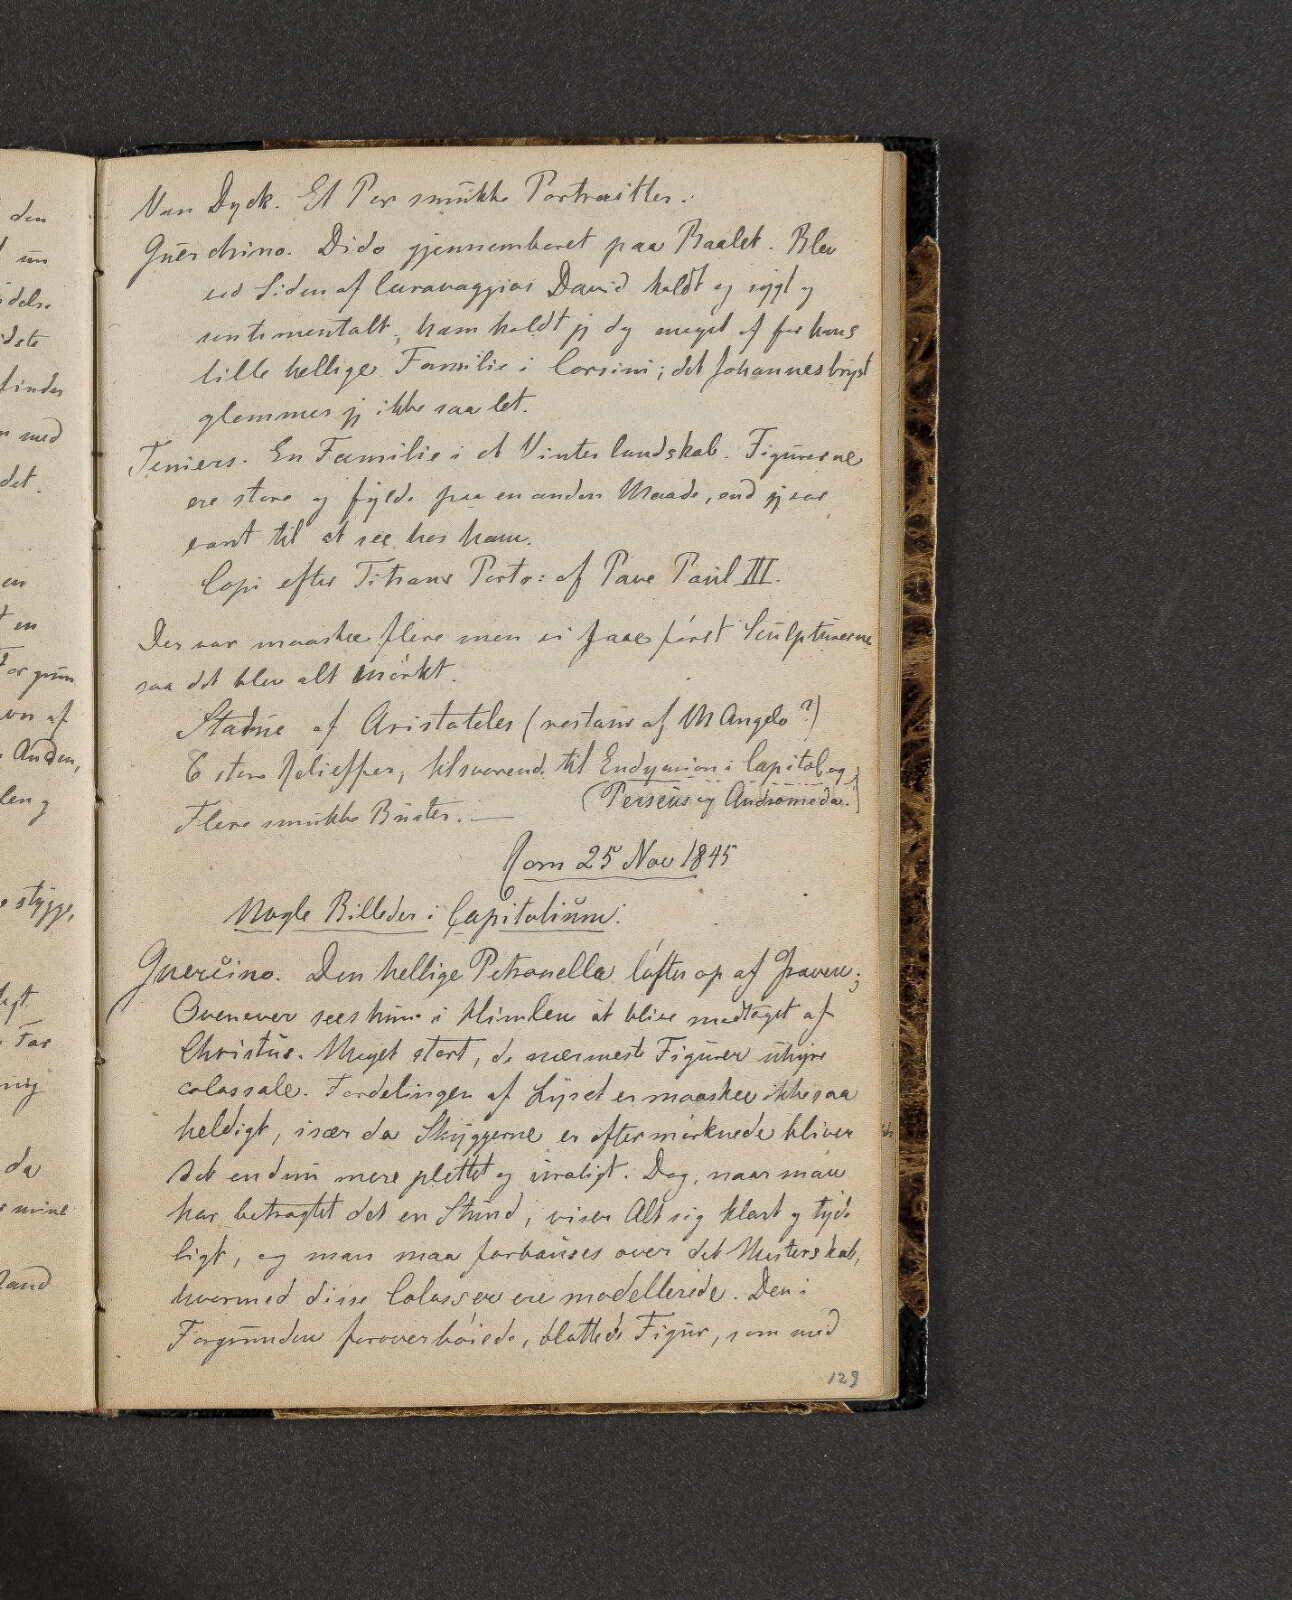 Van Dyck. Et Par smukke Portraitter.
Guerchino. Dido gjennemboret paa Baalet. Blev
ved Siden af Caravaggios David koldt og sygt og
sentimentalt, ham holdt jeg dog meget af for hans
lille hellige Familie i Corsini; det Johannesbryst
glemmes jeg ikke saa let.
Teniers. En Familie i et Vinterlandskab. Figurerne
ere store og fyldt paa en anden Maade, end jeg var
vant til at see hos ham.
Copi efter Titians Portr: af Pave Paul III.
Der var maaskee flere men vi saae først Sculpturerne
saa det blev alt mörkt.
Statue af Aristoteles (restaur af M Angelo?)
6 store Relieffer, tilsvarend. til Endymion i Capitol og
(Perseus og Andromeda.)
Flere smukke Büster. —
Rom 25 Nov 1845
Nogle Billeder i Capitolium.
Guercino. Den hellige Petronella löftes op af Graven;
Ovenover sees hun i Himlen at blive modtaget af
Christus. Meget stort, de nærmeste Figurer uhyre
colossale. Fordelingen af Lyset er maaskee ikke saa
heldigt, især da Skyggerne er eftermörknede bliver
det endnu mere plettet og uroligt. Dog, naar man
har betragtet det en Stund, viser Alt sig klart og tyde
ligt, og man maa forbauses over det Mesterskab,
hvormed disse Colosser ere modellerede. Den i
Forgrunden foroverböiede, blottede Figur, som med
129
den
med
det.
en
af
Anden,
stygge,
da
mine